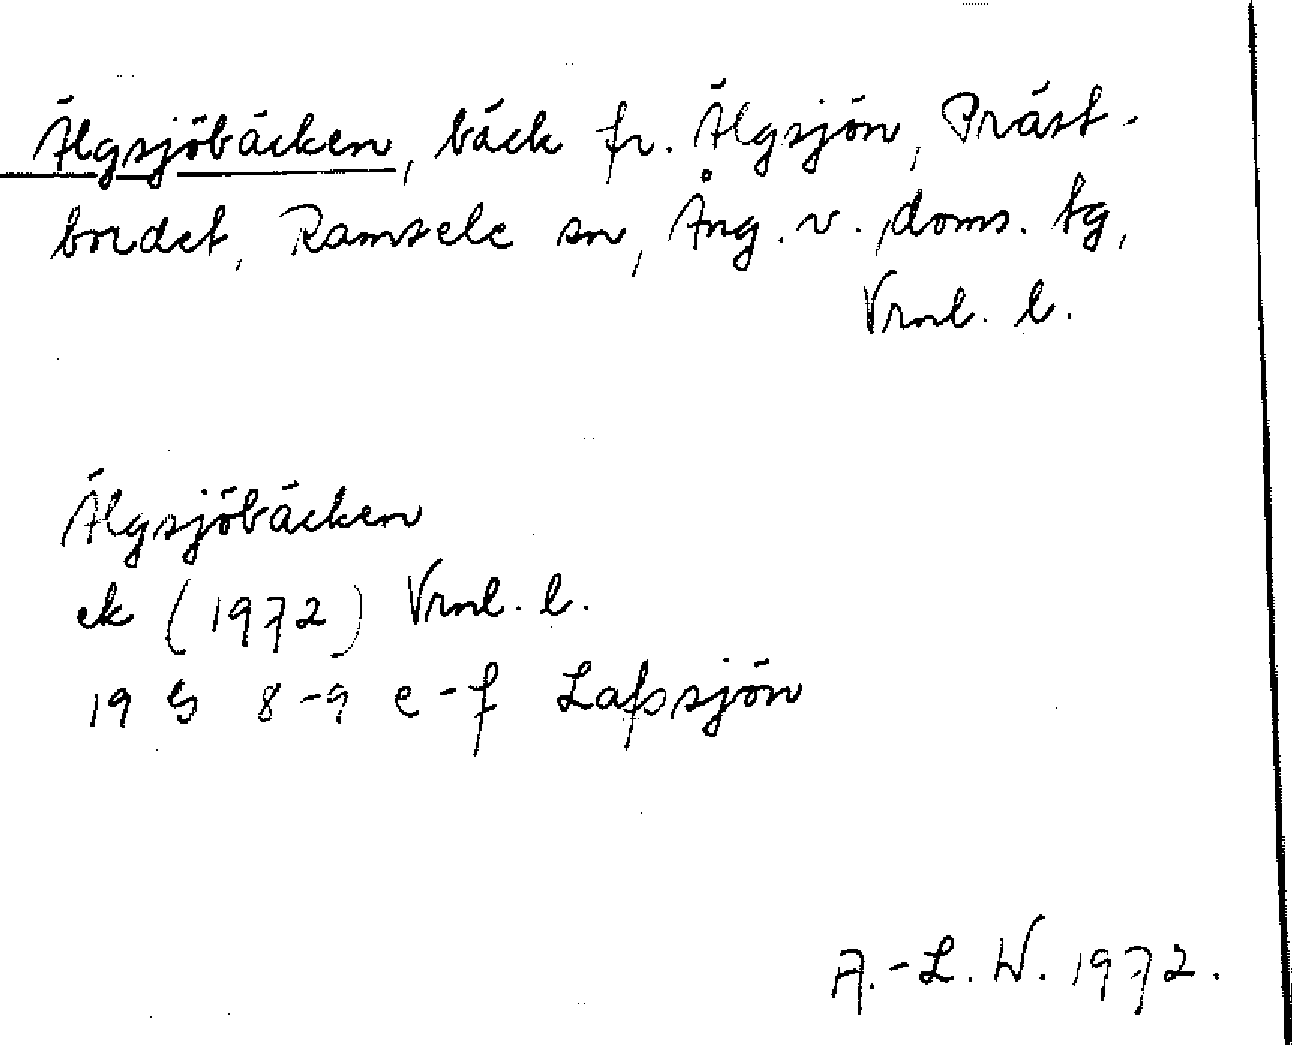 Älgsjöbäcken, bäck fr. Älgsjön, Präst-
bordet, Ramsele sn, Ång. v. doms. tg,
Vrnl. l.
Älgsjöbäcken
ek (1972) Vrnl. l.
19 G 8-9 e-f Lafssjön
A.-L. W. 1972.